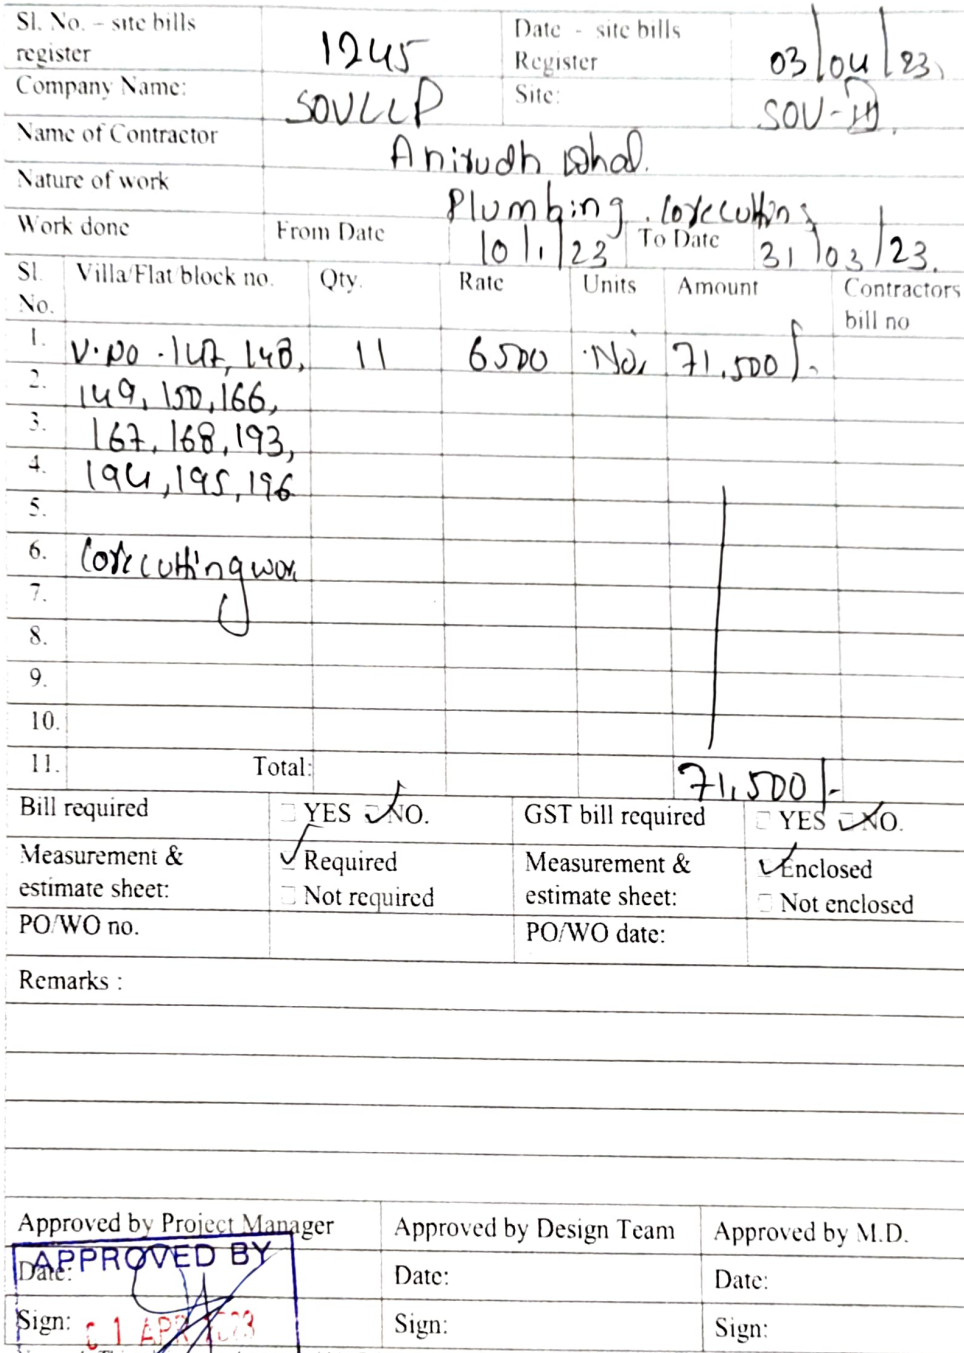 Sl. No. – site bills register 1245 Date - site bills Register 03/04/23
Company Name: SOVLLP Site: SOV-III
Name of Contractor Anirudh Dhal.
Nature of work Plumbing. Corecutting
Work done From Date 10/1/23 To Date 31/03/23.
Sl. No. Villa/Flat/block no. Qty. Rate Units Amount Contractors bill no
1. V.No. 147, 148, 11 6500 No. 71,500/-
2. 149, 150, 166,
3. 167, 168, 193,
4. 194, 195, 196
5.
6. Corecutting
7.
8.
9.
10.
11. Total: 71,500/-
Bill required YES NO. GST bill required YES NO.
Measurement & estimate sheet: Required Measurement & estimate sheet: Enclosed
Not required Not enclosed
PO/WO no. PO/WO date:
Remarks :
Approved by Project Manager Approved by Design Team Approved by M.D.
APPROVED BY
Date: Date: Date:
Sign: 01 APR 2023 Sign: Sign: